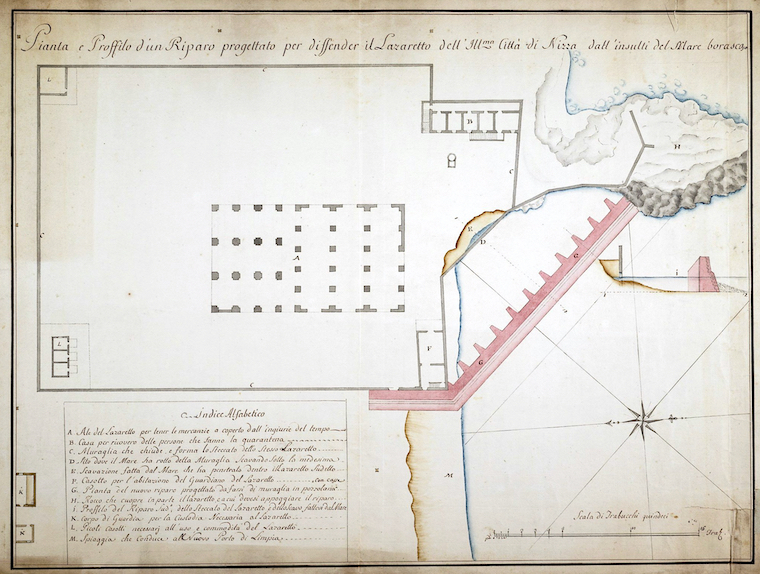 Pianta e Proffilo d'un Riparo progettato per diffender il Lazaretto dell'Ill.ma Città di Nizza dall'insulti del Mare borasco
L
C
B
H
C
E
D
C
A
G
i
L
F
G
C
M
K
K
Indice Alfabetico
A. Ale del Lazaretto per tener le mercanzie a coperto dall'ingiurie del tempo
B. Casa per ricovero delle persone che fanno la quarantena
C. Muraglia che chiude, e forma lo steccato dello stesso Lazaretto
D. Sito dove il Mare ha rotto della Muraglia scavando sotto la medesima
E. Scavazione fatta dal Mare che ha penetrato dentro il Lazaretto sudetto
F. Casotto per l'abitazione del Guardiano del Lazaretto
G. Pianta del nuovo riparo progettato da farsi di muraglia in pozzolana
H. Roco che cuopre in parte il lazaretto, e a cui devesi appoggiare il riparo
I. Proffilo del Riparo Sud.º, dello steccato del Lazaretto, e dello scavo fattosi dal Mare
K. Corpo di Guardia per la Custodia Necessaria al Lazaretto
L. Picoli Casotti necessarj all'uso, e commodità del Lazaretto
M. Spiaggia che conduce al Nuovo Porto di Limpia
Scala di Trabucchi quindeci